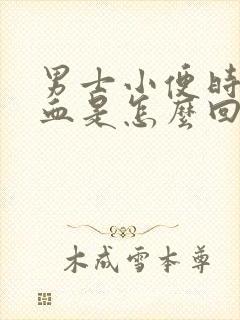 男士小便时
血是怎麼回
木成雪本尊